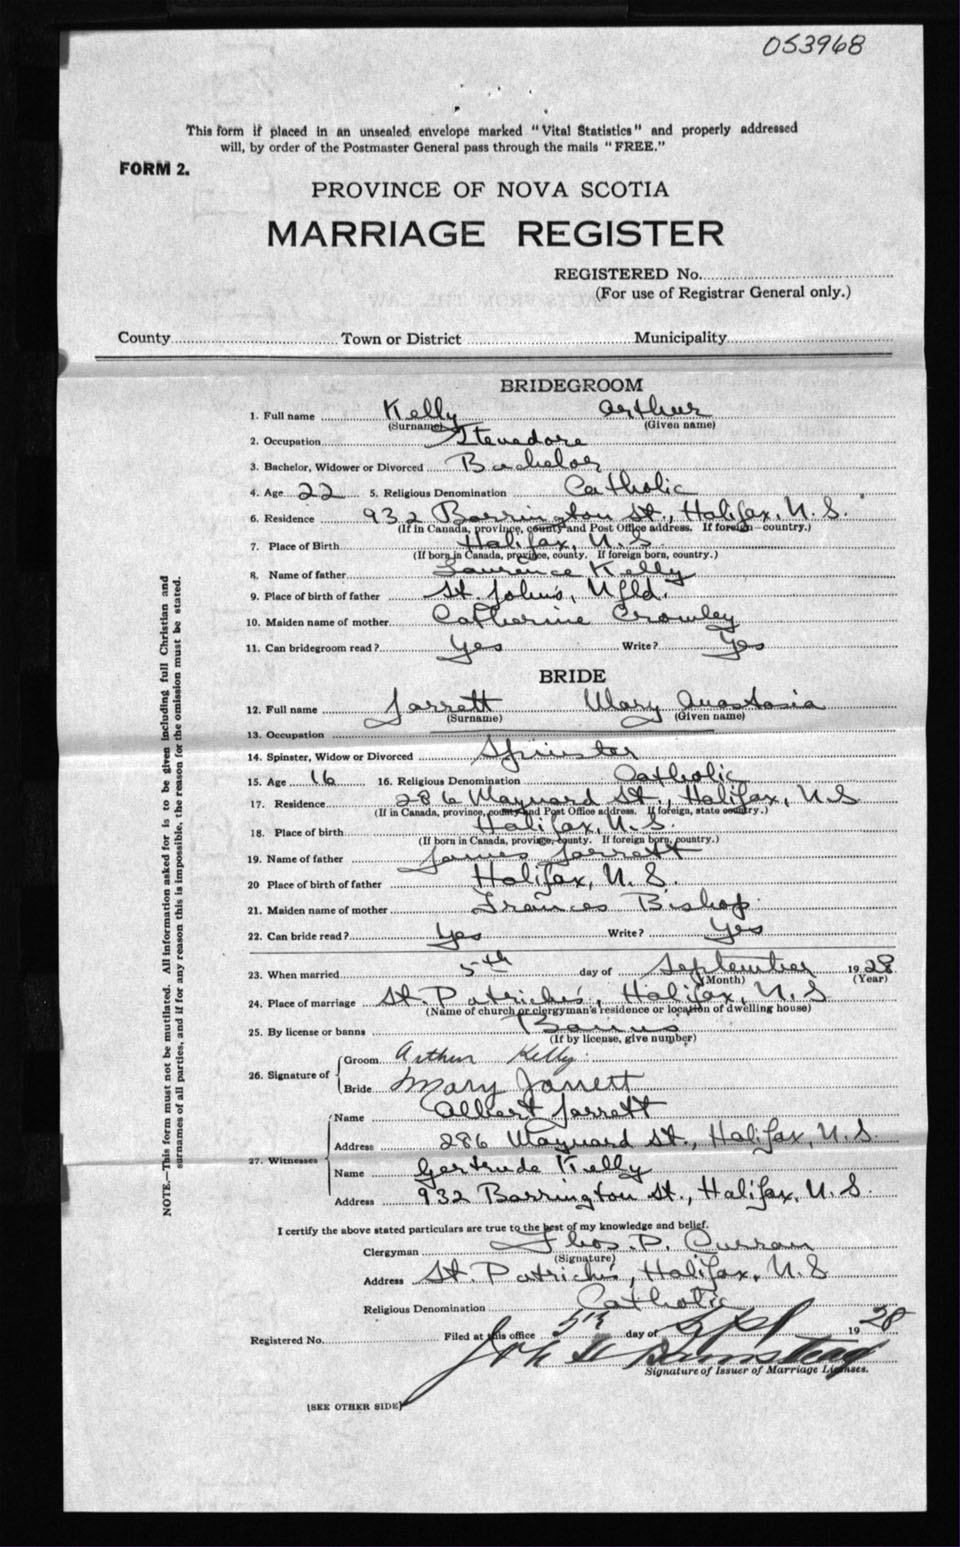 053968
This form if placed in an unsealed envelope marked "Vital Statistics" and properly addressed
will, by order of the Postmaster General pass through the mails "FREE."
FORM 2.
PROVINCE OF NOVA SCOTIA
MARRIAGE REGISTER
REGISTERED No.
(For use of Registrar General only.)
County Town or District Municipality
BRIDEGROOM
1. Full name Kelly Arthur
(Surname) (Given name)
2. Occupation Stevedore
3. Bachelor, Widower or Divorced Bachelor
4. Age 22 5. Religious Denomination Catholic
6. Residence 932 Barrington St., Halifax, N.S.
(If in Canada, province, county and Post Office address. If foreign—country.)
7. Place of Birth Halifax, N.S.
(If born in Canada, province, county. If foreign born, country.)
8. Name of father Laurence Kelly
9. Place of birth of father St. John's, Nfld.
10. Maiden name of mother Catherine Crowley
11. Can bridegroom read? Yes Write? Yes
BRIDE
12. Full name Jarrett Mary Anastasia
(Surname) (Given name)
13. Occupation
14. Spinster, Widow or Divorced Spinster
15. Age 16 16. Religious Denomination Catholic
17. Residence 286 Maynard St., Halifax, N.S
(If in Canada, province, county and Post Office address. If foreign, state country.)
18. Place of birth Halifax, N.S.
(If born in Canada, province, county. If foreign born, country.)
19. Name of father James Jarrett
20 Place of birth of father Halifax, N.S.
21. Maiden name of mother Frances Bishop
22. Can bride read? Yes Write? Yes
23. When married 5th day of September 1928
(Month) (Year)
24. Place of marriage St. Patrick's, Halifax, N.S
(Name of church or clergyman's residence or location of dwelling house)
25. By license or banns Banns
(If by license, give number)
26. Signature of
Groom Arthur Kelly
Bride Mary Jarrett
27. Witnesses
Name Albert Jarrett
Address 286 Maynard St., Halifax, N.S.
Name Gertrude Kelly
Address 932 Barrington St., Halifax, N.S.
I certify the above stated particulars are true to the best of my knowledge and belief.
Clergyman Thos. P. Curran
(Signature)
Address St. Patrick's, Halifax, N.S
Religious Denomination Catholic
Registered No. Filed at this office 5th day of Sept 1928
Signature of Issuer of Marriage Licenses.
[SEE OTHER SIDE]
NOTE.—This form must not be mutilated. All information asked for is to be given including full Christian and
surnames of all parties, and if for any reason this is impossible, the reason for the omission must be stated.